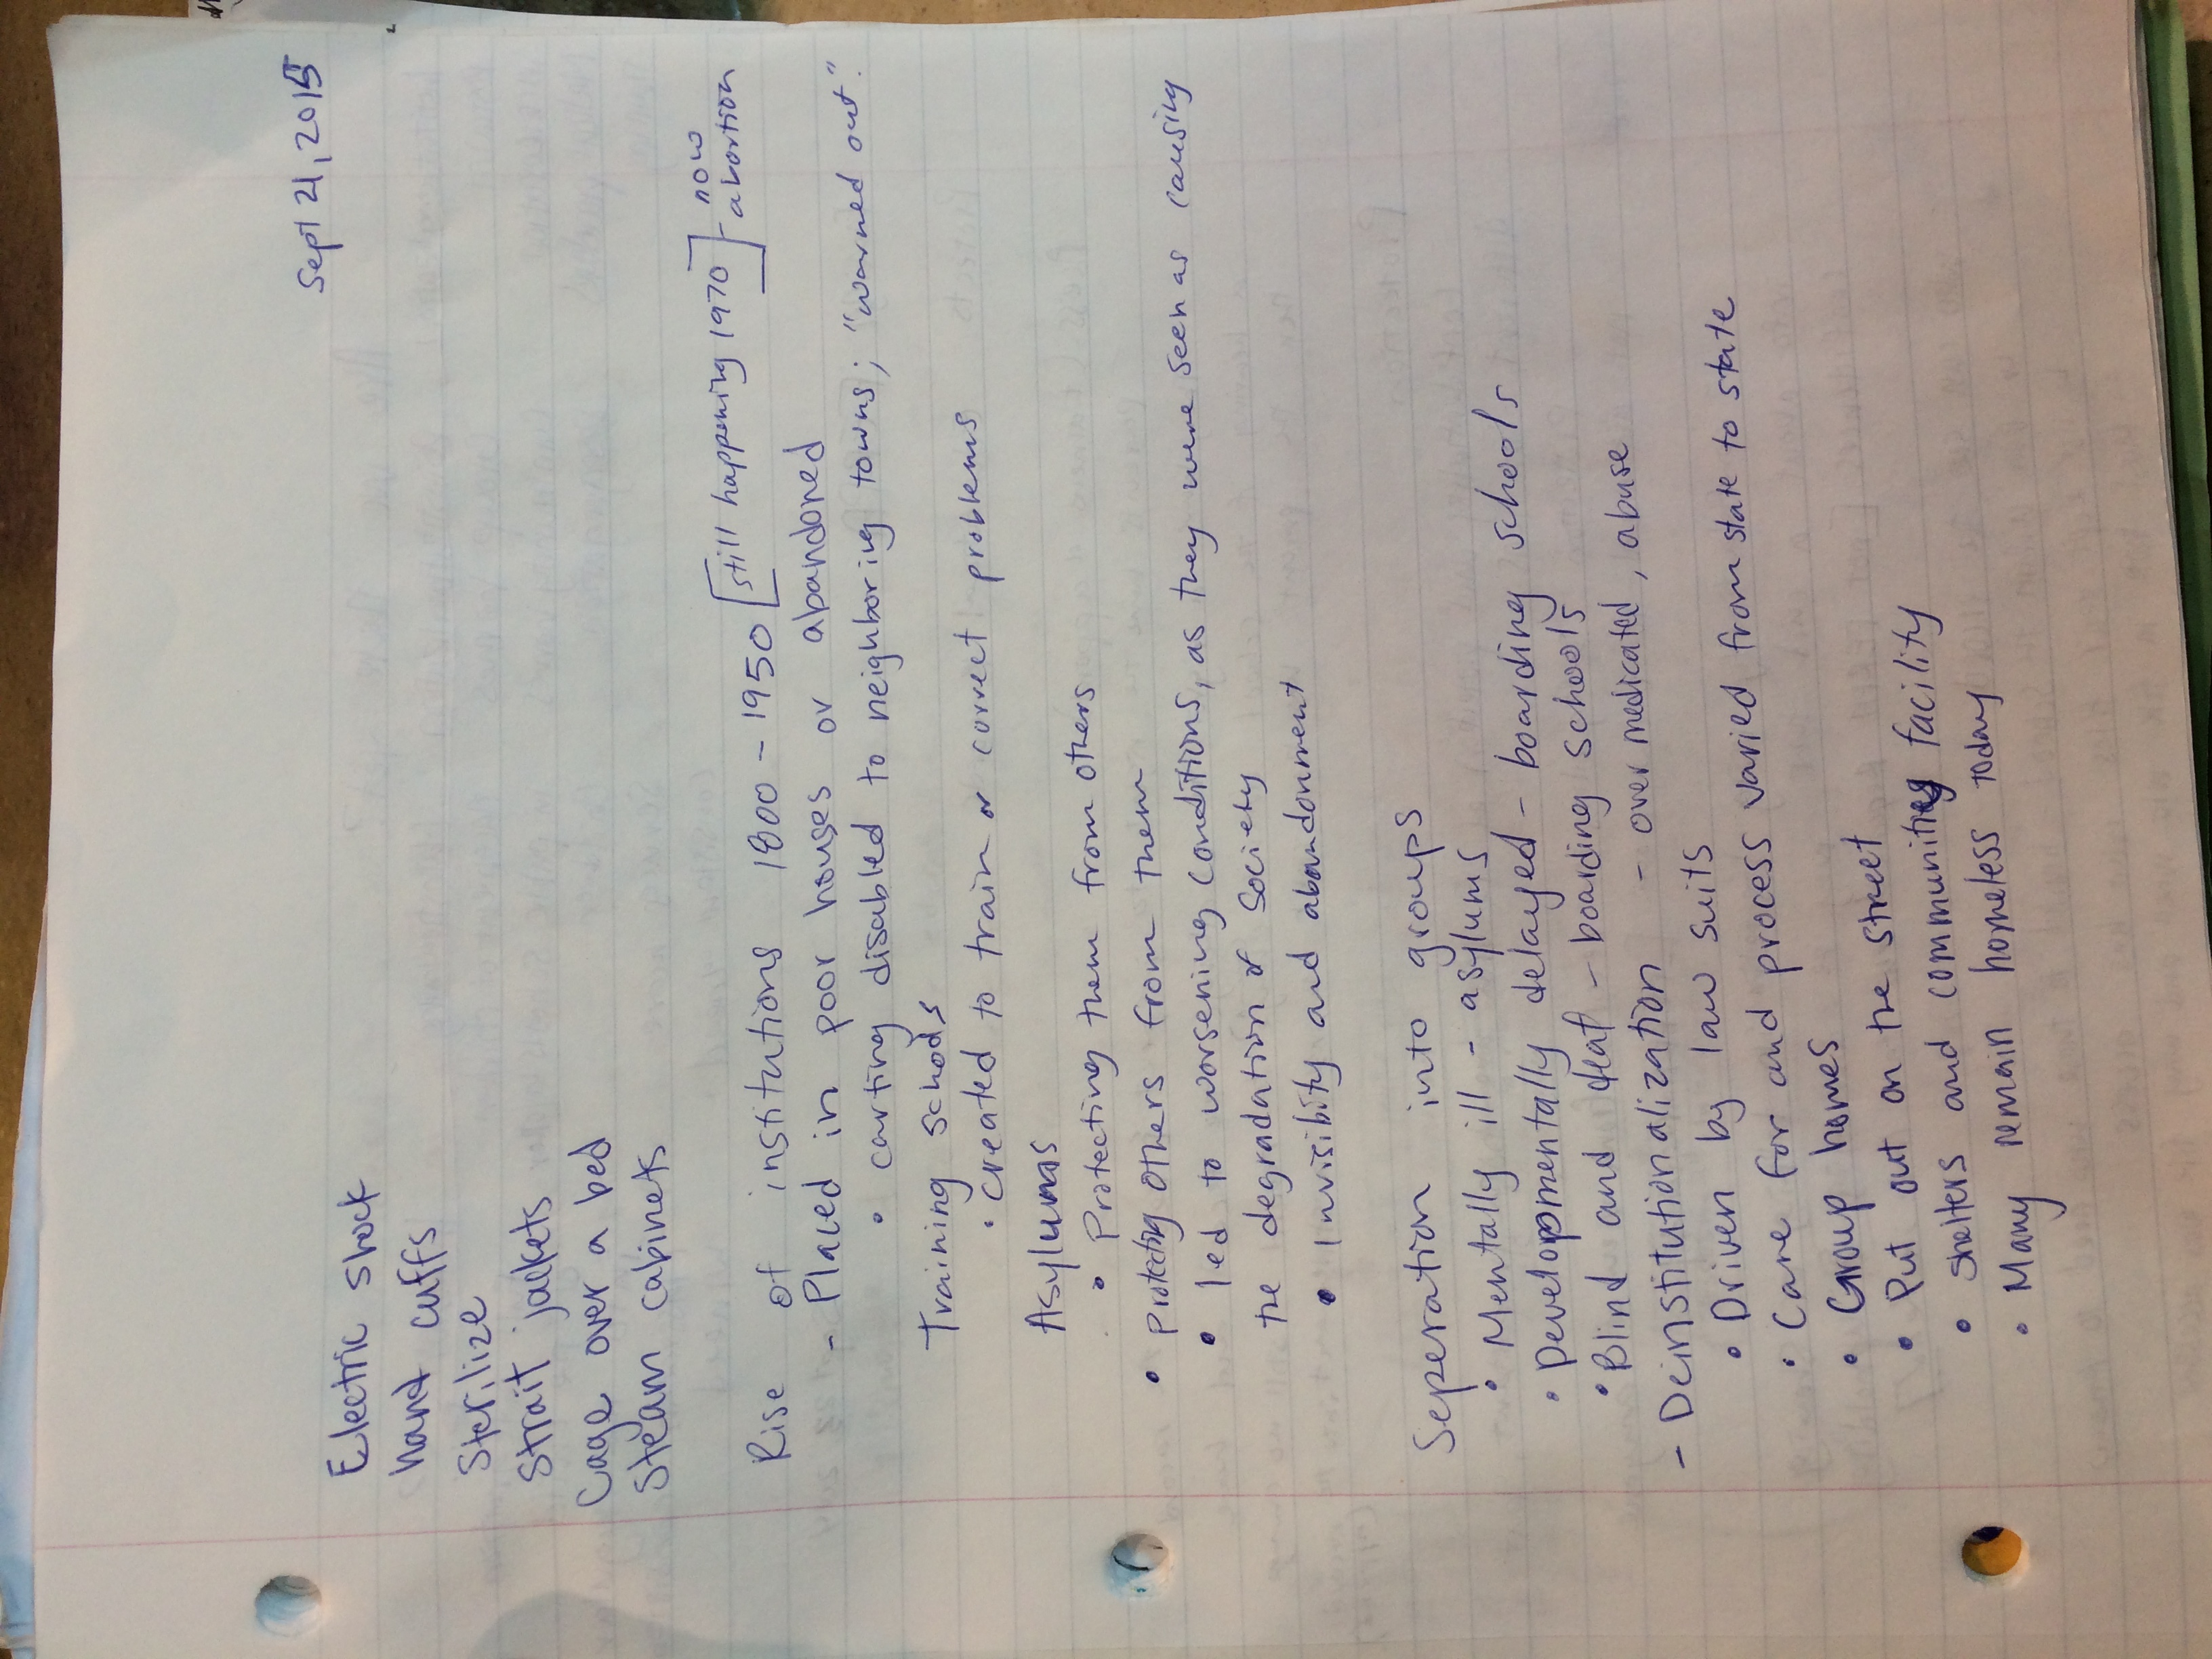 Sept 21, 2015
Electric shock
hand cuffs
Sterilize
Strait jackets
Cage over a bed
Steam cabinets
Rise of institutions 1800 - 1950 [still happening 1970] now abortion
- Placed in poor houses or abandoned
• carting disabled to neighboring towns; "warned out".
Training schools
• created to train or correct problems
Asylums
• Protecting them from others
• Protecting others from them
• led to worsening conditions, as they were seen as causing
the degradation of society
• Invisibility and abandonment
Seperation into groups
• Mentally ill - asylums
• Developmentally delayed - boarding schools
• Blind and deaf - boarding schools
- Deinstitutionalization - over medicated, abuse
• Driven by law suits
• Care for and process varied from state to state
• Group homes
• Put out on the street
• shelters and community facility
• Many remain homeless today